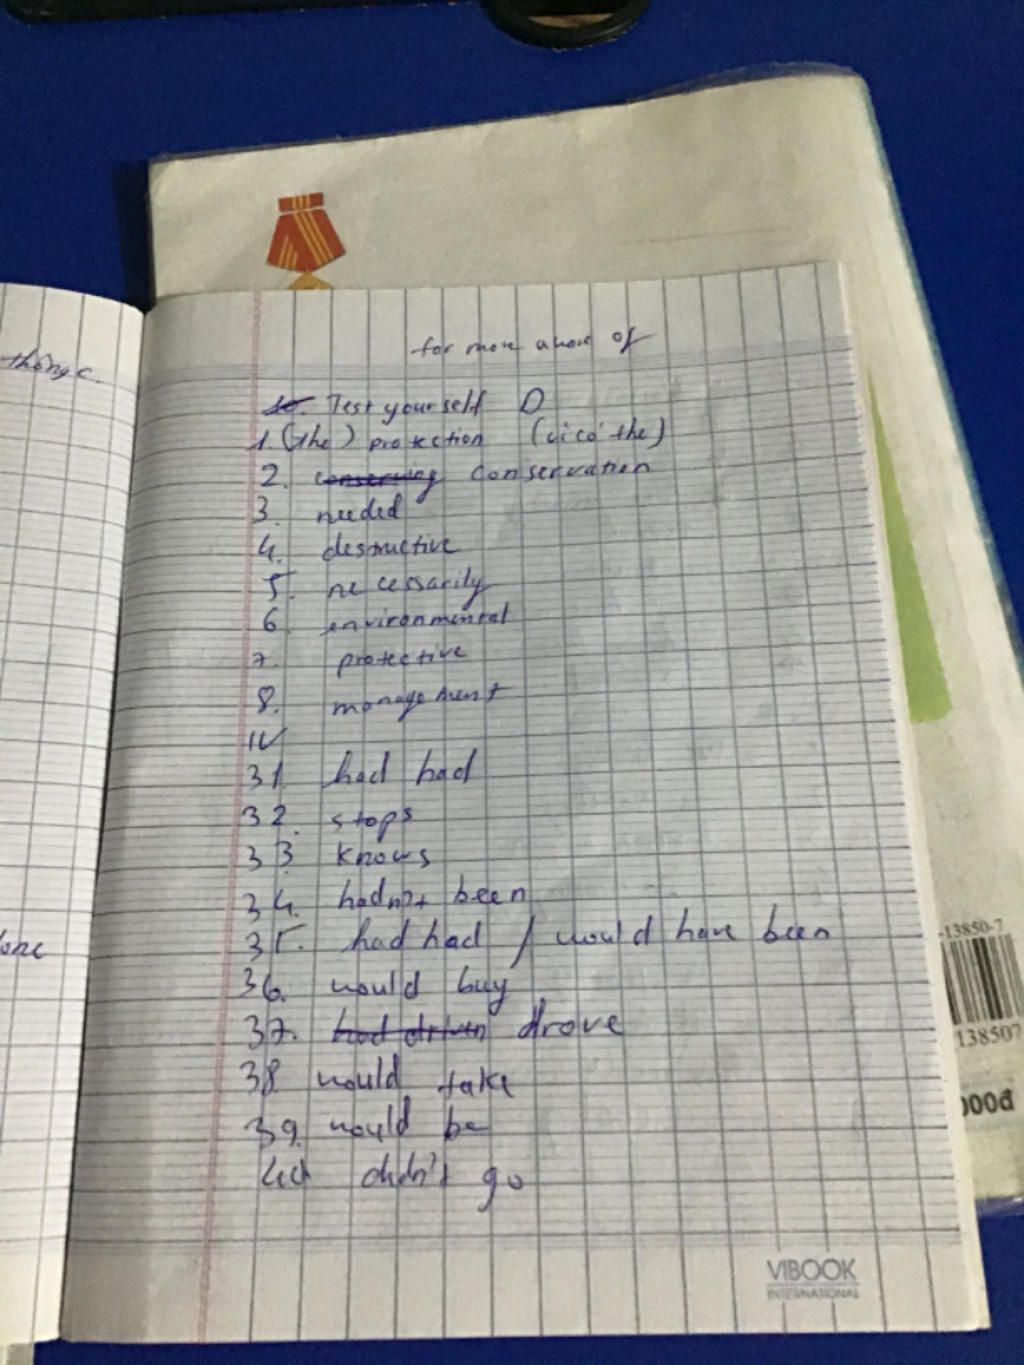 thống c.
for more aware of
10. Test yourself D
1. (the) protection (vì có the)
2. conserving conservation
3. needed
4. destructive
5. necessarily
6 environmental
7. protective
8. management
IV
31. had had
32. stops
33 knows
34. hadn't been
35. had had / would have been
36. would buy
37. had driven drove
38 would take
39. would be
40 didn't go
VIBOOK
INTERNATIONAL
-13850-7
138507
000đ